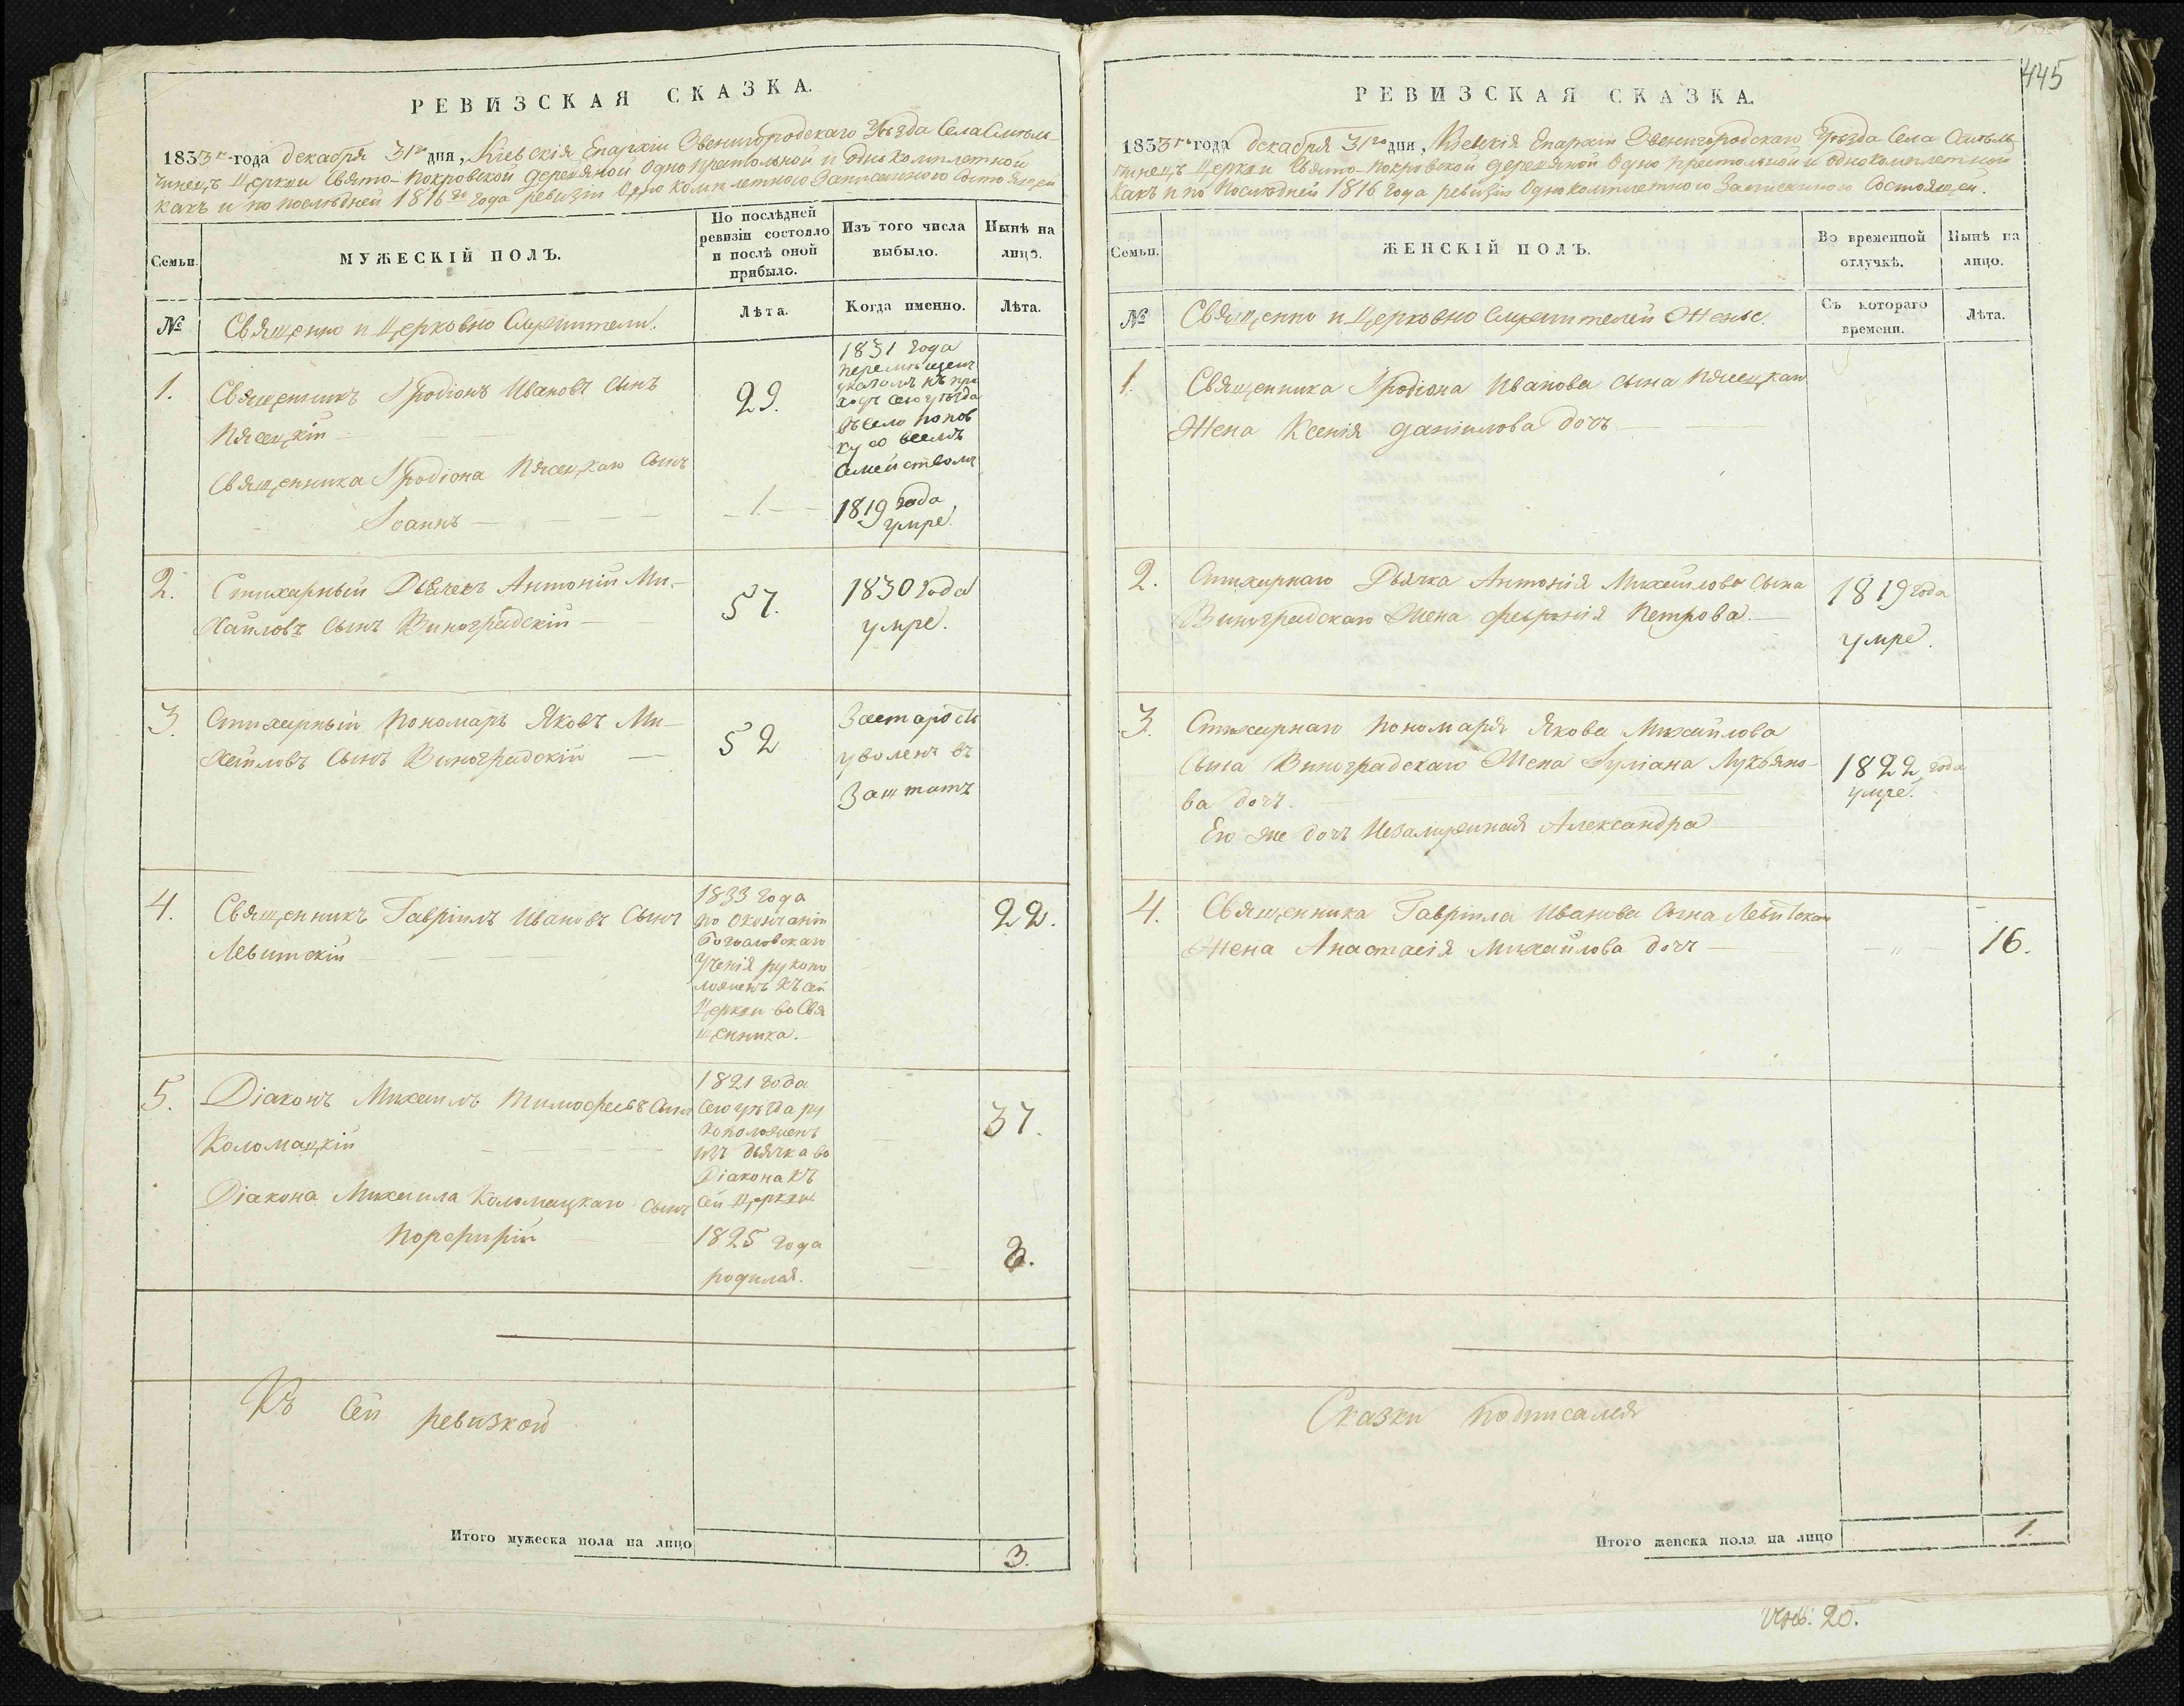 РЕВИЗСКАЯ СКАЗКА.
1833го года декабря 31го дня, Кіевскія Епархіи Звенигородскаго Уѣзда Села Смѣль
чинецъ Церкви Свято-Покровской деревяной Однопрестольной и однокомплетной
какъ и по послѣдней 1816го года ревизіи Однокомплетного Записанного Состоящей
Семьи.
МУЖЕСКІЙ ПОЛЪ.
По послѣдней
ревизіи состояло
и послѣ оной
прибыло.
Изъ того числа
выбыло.
Нынѣ на
лицо.
№
Священно и Церковно Служители.
Лѣта.
Когда именно.
Лѣта.
1.
Священникъ Иродіонъ Ивановъ Сынъ
Пясецкій
29.
1831 года
перемѣщенъ
указомъ къ при
ходу сего уѣзда
въ село Попов
ку со всемъ
Семействомъ
Священника Иродіона Пясецкаго Сынъ
Іоаннъ
1.
1819 года
умре.
2.
Стихарный Дьячекъ Антоній Ми-
хайловъ Сынъ Виноградскій
57.
1830 года
умре.
3.
Стихарный Пономарь Яковъ Ми-
хайловъ Сынъ Виноградскій
52
За старость
уволенъ въ
Заштатъ
4.
Священникъ Гавріилъ Ивановъ Сынъ
Левитскій
1833 года
по окончаніи
Богословскаго
Ученія рукопо
ложенъ къ сей
Церкви во Свя
щенника.
22.
5.
Діаконъ Михаилъ Тимофеевъ Сынъ
Коломацкій
1821 года
Сего уѣзда ру
коположенъ
изъ дьячка во
Діакона къ
сей Церкви
37.
Діакона Михаила Коломацкаго Сынъ
Порфирій
1825 года
родился.
8.
Къ Сей ревизкой
Итого мужеска пола на лицо
3.
445
РЕВИЗСКАЯ СКАЗКА.
1833го года декабря 31го дня, Кіевскія Епархіи Звенигородскаго Уѣзда Села Смѣль
чинецъ Церкви Свято-Покровской деревяной Однопрестольной и однокомплетной
Какъ и по Послѣдней 1816 года ревизіи Однокомплетного Записанного Состоящей.
Семьи.
ЖЕНСКІЙ ПОЛЪ.
Во временной
отлучкѣ.
Нынѣ на
лицо.
№
Священно и Церковно Служителей Жены.
Съ котораго
времени.
Лѣта.
1.
Священника Иродіона Иванова сына Пясецкаго
Жена Ксенія Даніилова дочь
2.
Стихарнаго Дьячка Антонія Михайлова Сына
Виноградскаго Жена Февронія Петрова.
1819 года
умре.
3.
Стихарнаго Пономаря Якова Михайлова
Сына Виноградскаго Жена Іуліана Лукьяно-
ва дочь.
1822 года
умре.
Его же дочь Незамужная Александра
4.
Священника Гавріила Иванова Сына Левитскаго
Жена Анастасія Михайлова дочь
16.
Сказки подписался
Итого женска пола на лицо
1.
20.